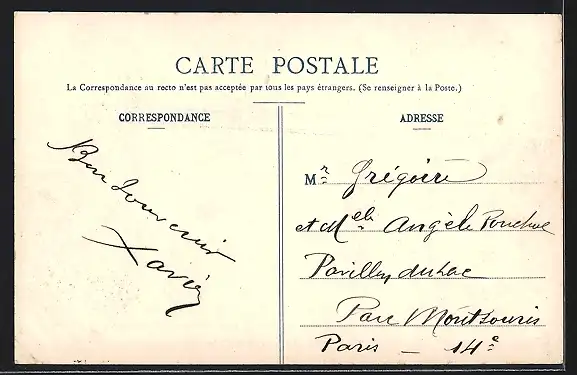 CARTE POSTALE
La Correspondance au recto n'est pas acceptée par tous les pays étrangers. (Se renseigner à la Poste.)
CORRESPONDANCE
Bon Souvenir
Xavier
ADRESSE
Mr Grégoire
et Melle Angèle
Pavillon du Lac
Parc Montsouris
Paris — 14e